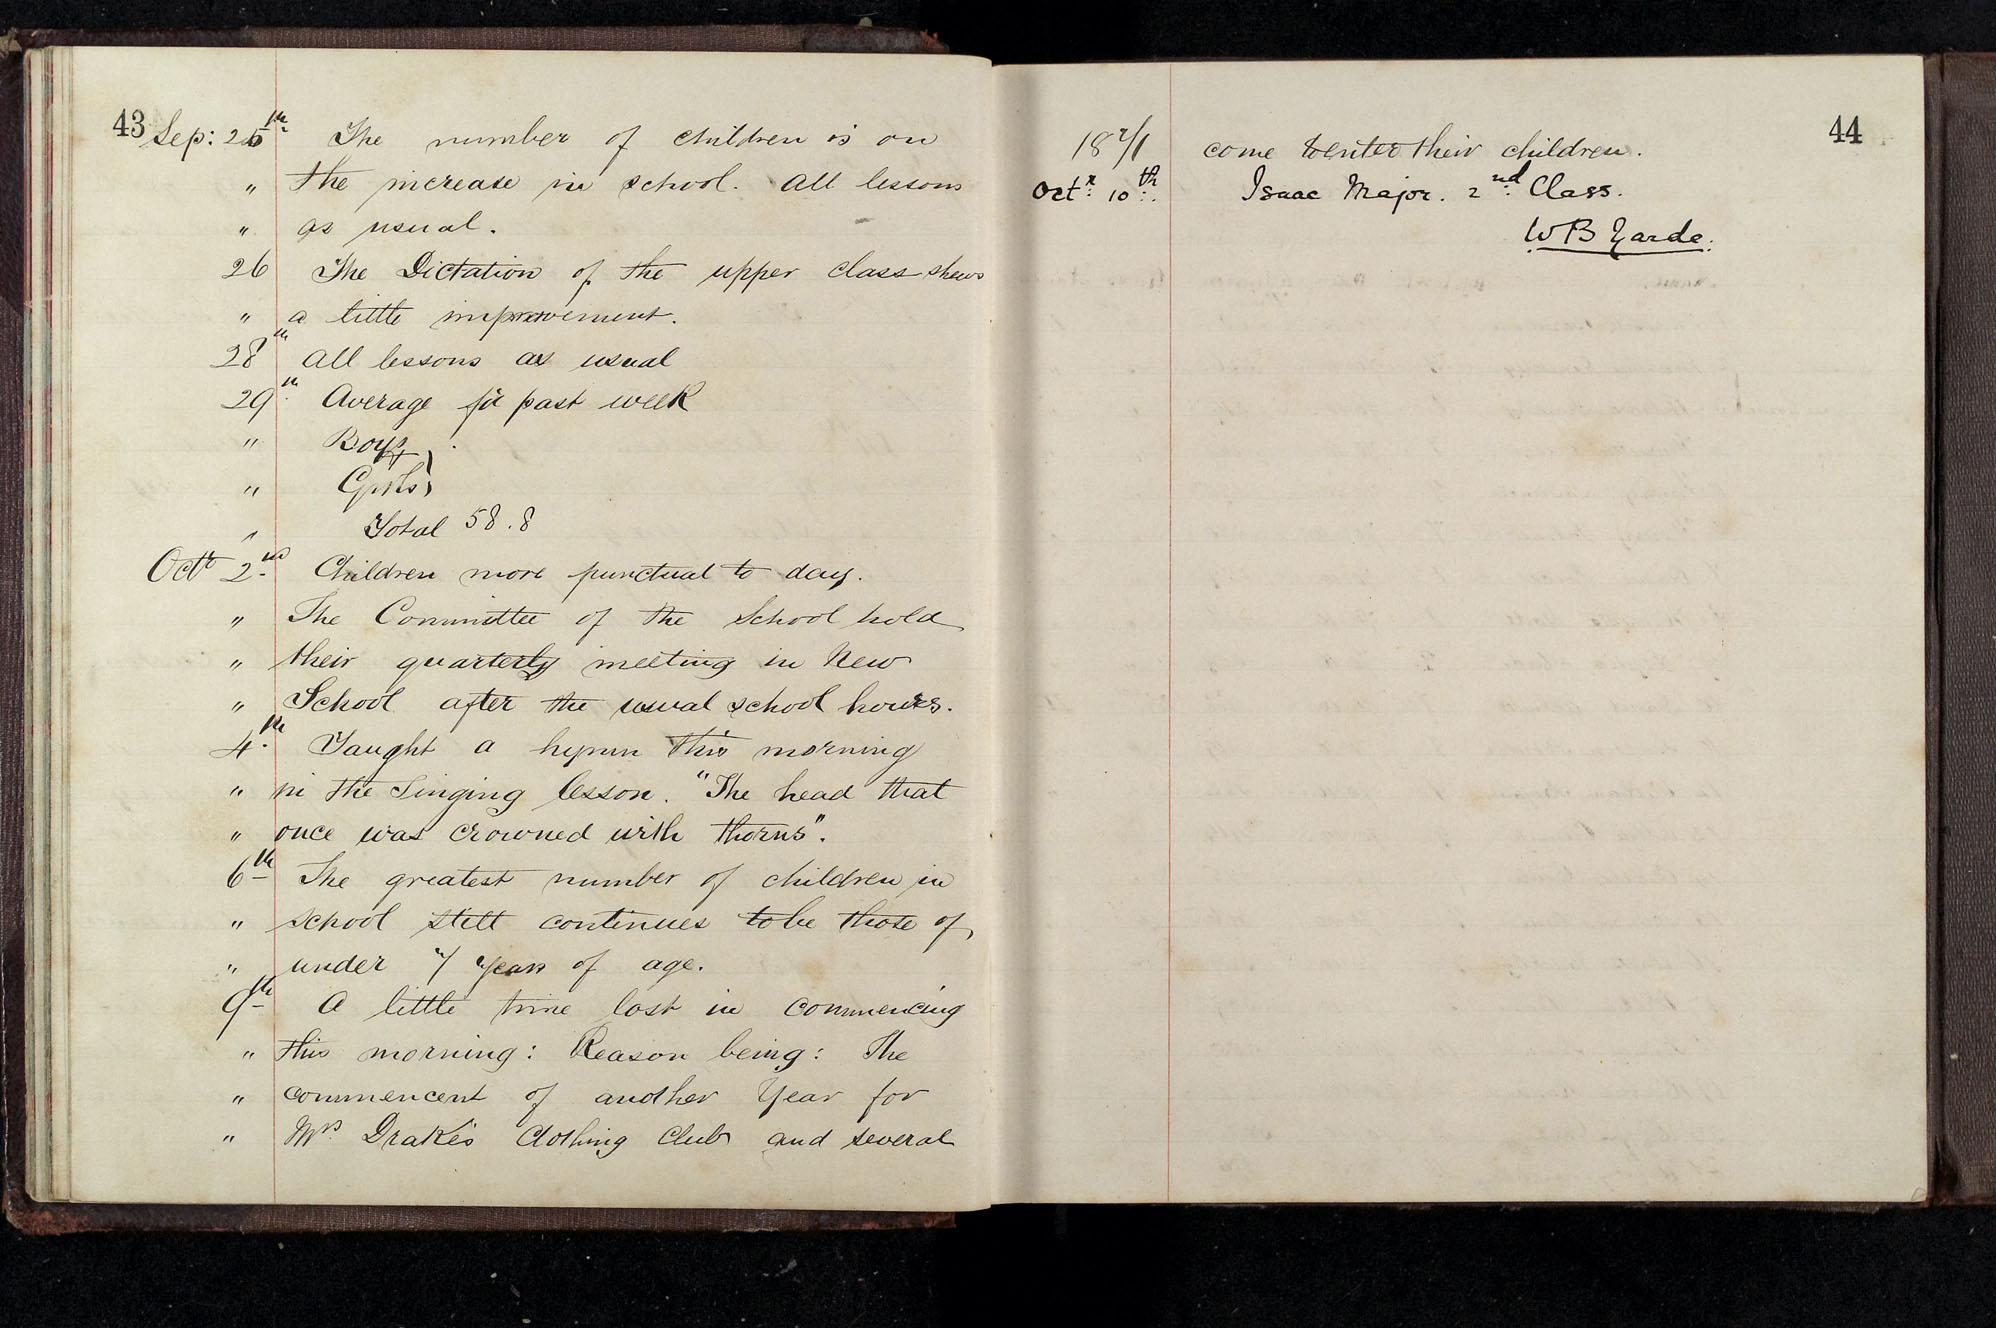 43
Sep: 25th The number of children is on
" the increase in school. All lessons
" as usual.
26 The Dictation of the upper class shews
" a little improvement.
28th All lessons as usual
29th Average for past week
" Boys
" Girls
" Total 58.8
Octr 2nd Children more punctual to day.
" The Committee of the School hold
" their quarterly meeting in New
" School after the usual school hours.
4th Taught a hymn this morning
" in the Singing lesson. "The head that
" once was crowned with thorns".
6th The greatest number of children in
" school still continues to be those of
" under 7 years of age.
9th A little time lost in commencing
" this morning: Reason being: The
" commencent of another Year for
" Mrs Drake's Clothing Club and several
44
1871 come to enter their children.
Octr 10th Isaac Major. 2nd Class.
W B Yarde.